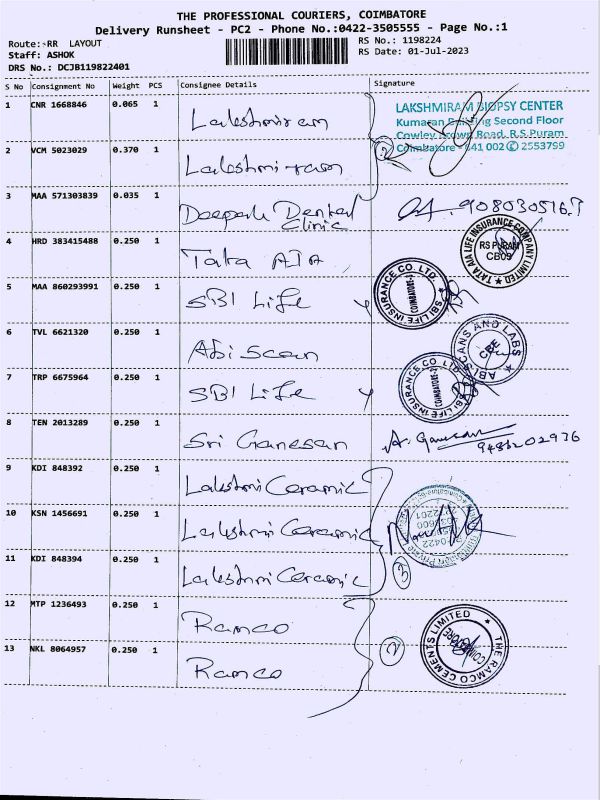 THE PROFESSIONAL COURIERS, COIMBATORE
Delivery Runsheet - PC2 - Phone No.:0422-3505555 - Page No.:1
Route: RR LAYOUT
RS No.: 1198224
Staff: ASHOK
RS Date: 01-Jul-2023
DRS No.: DCJB119822401
S No Consignment No Weight PCS Consignee Details Signature
1 CNR 1668846 0.065 1 Lakshmiram
LAKSHMIRAM BIOPSY CENTER
Kumaran Building Second Floor
Cowley Brown Road, R.S.Puram
Coimbatore - 641 002 ✆ 2553799
2 VCM 5023029 0.370 1 Lakshmiram
2
3 MAA 571303839 0.035 1 Deepak Dental Clinic
4 HRD 383415488 0.250 1 Tata AIA
TATA AIA LIFE INSURANCE COMPANY LIMITED
RS PURAM
CB09
5 MAA 860293991 0.250 1 SBI Life
SBI LIFE INSURANCE CO. LTD.
COIMBATORE-2
6 TVL 6621320 0.250 1 Abi Scan
ABI SCANS AND LABS
CBE
7 TRP 6675964 0.250 1 SBI Life
SBI LIFE INSURANCE CO. LTD.
COIMBATORE-2
8 TEN 2013289 0.250 1 Sri Ganesan
9 KDI 848392 0.250 1 Lakshmi Ceramic
10 KSN 1456691 0.250 1 Lakshmi Ceramic
11 KDI 848394 0.250 1 Lakshmi Ceramic
3
12 MTP 1236493 0.250 1 Ramco
THE RAMCO CEMENTS LIMITED
COIMBATORE
13 NKL 8064957 0.250 1 Ramco
2